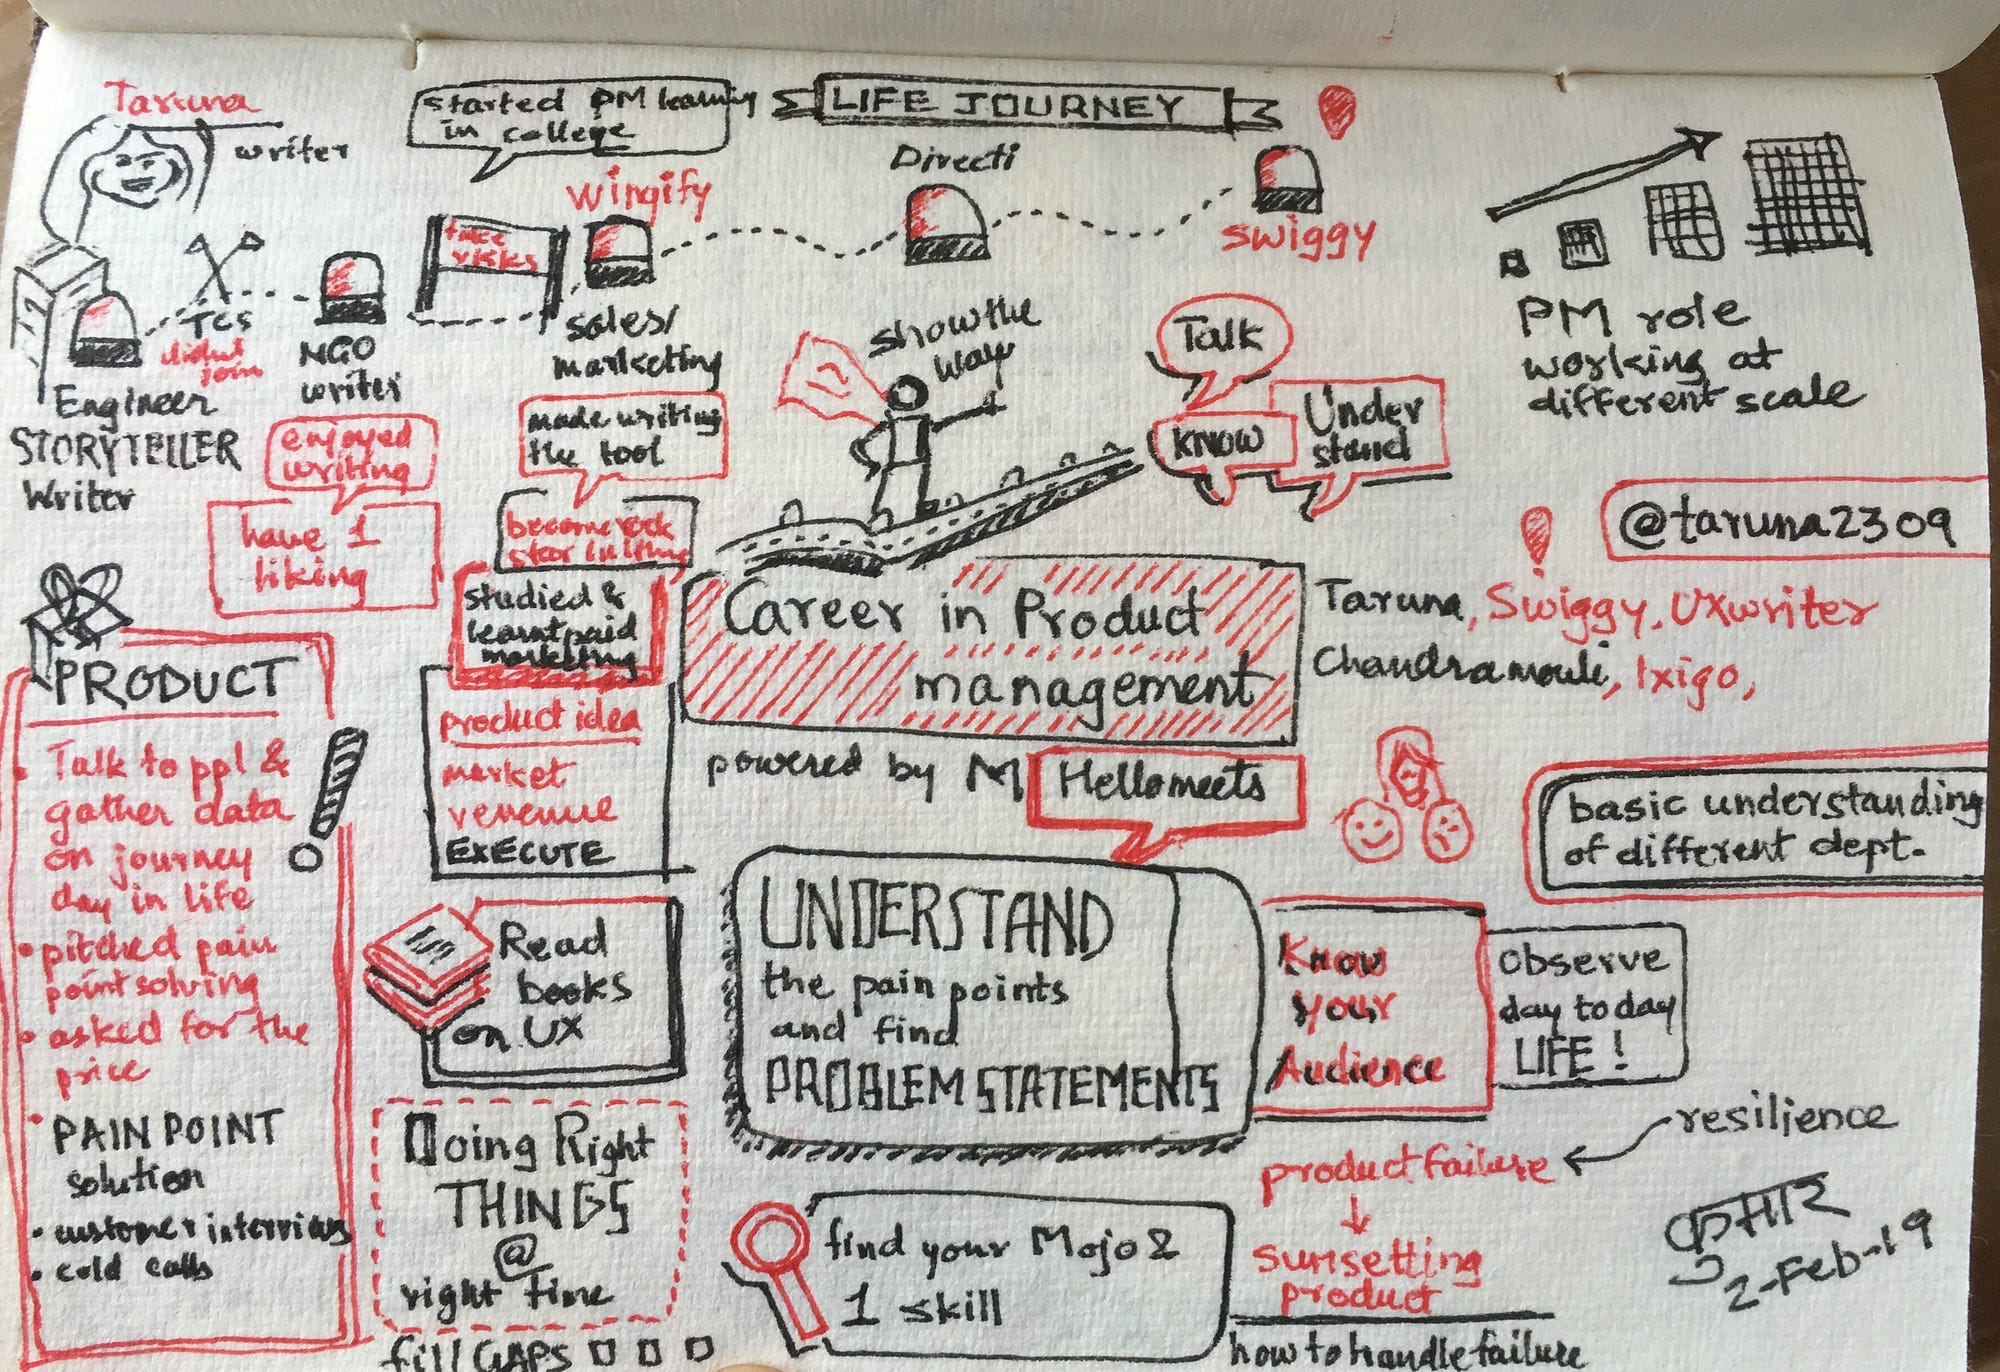 Taruna
writer
started PM learning
in college
LIFE JOURNEY
wingify
Directi
swiggy
take
risks
TCS
didnt
join
NGO
writer
Engineer
STORYTELLER
Writer
sales/
marketing
show the
way
Talk
know
Under
stand
PM role
working at
different scale
enjoyed
writing
have 1
liking
made writing
the tool
become rock
star in
studied &
learnt paid
marketing
product idea
market
revenue
EXECUTE
Career in Product
management
powered by
Hellomeets
@taruna2309
Taruna, Swiggy, UXwriter
Chandramouli, Ixigo,
basic understanding
of different dept.
PRODUCT
• Talk to ppl &
gather data
on journey
day in life
• pitched pain
point solving
• asked for the
price
• PAIN POINT
solution
• customer interviews
• cold calls
Read
books
on UX
Doing Right
THINGS
@
right time
fill GAPS
UNDERSTAND
the pain points
and find
PROBLEM STATEMENTS
Know
your
Audience
Observe
day to day
LIFE!
resilience
product failure
sunsetting
product
how to handle failure
find your Mojo &
1 skill
2-Feb-19